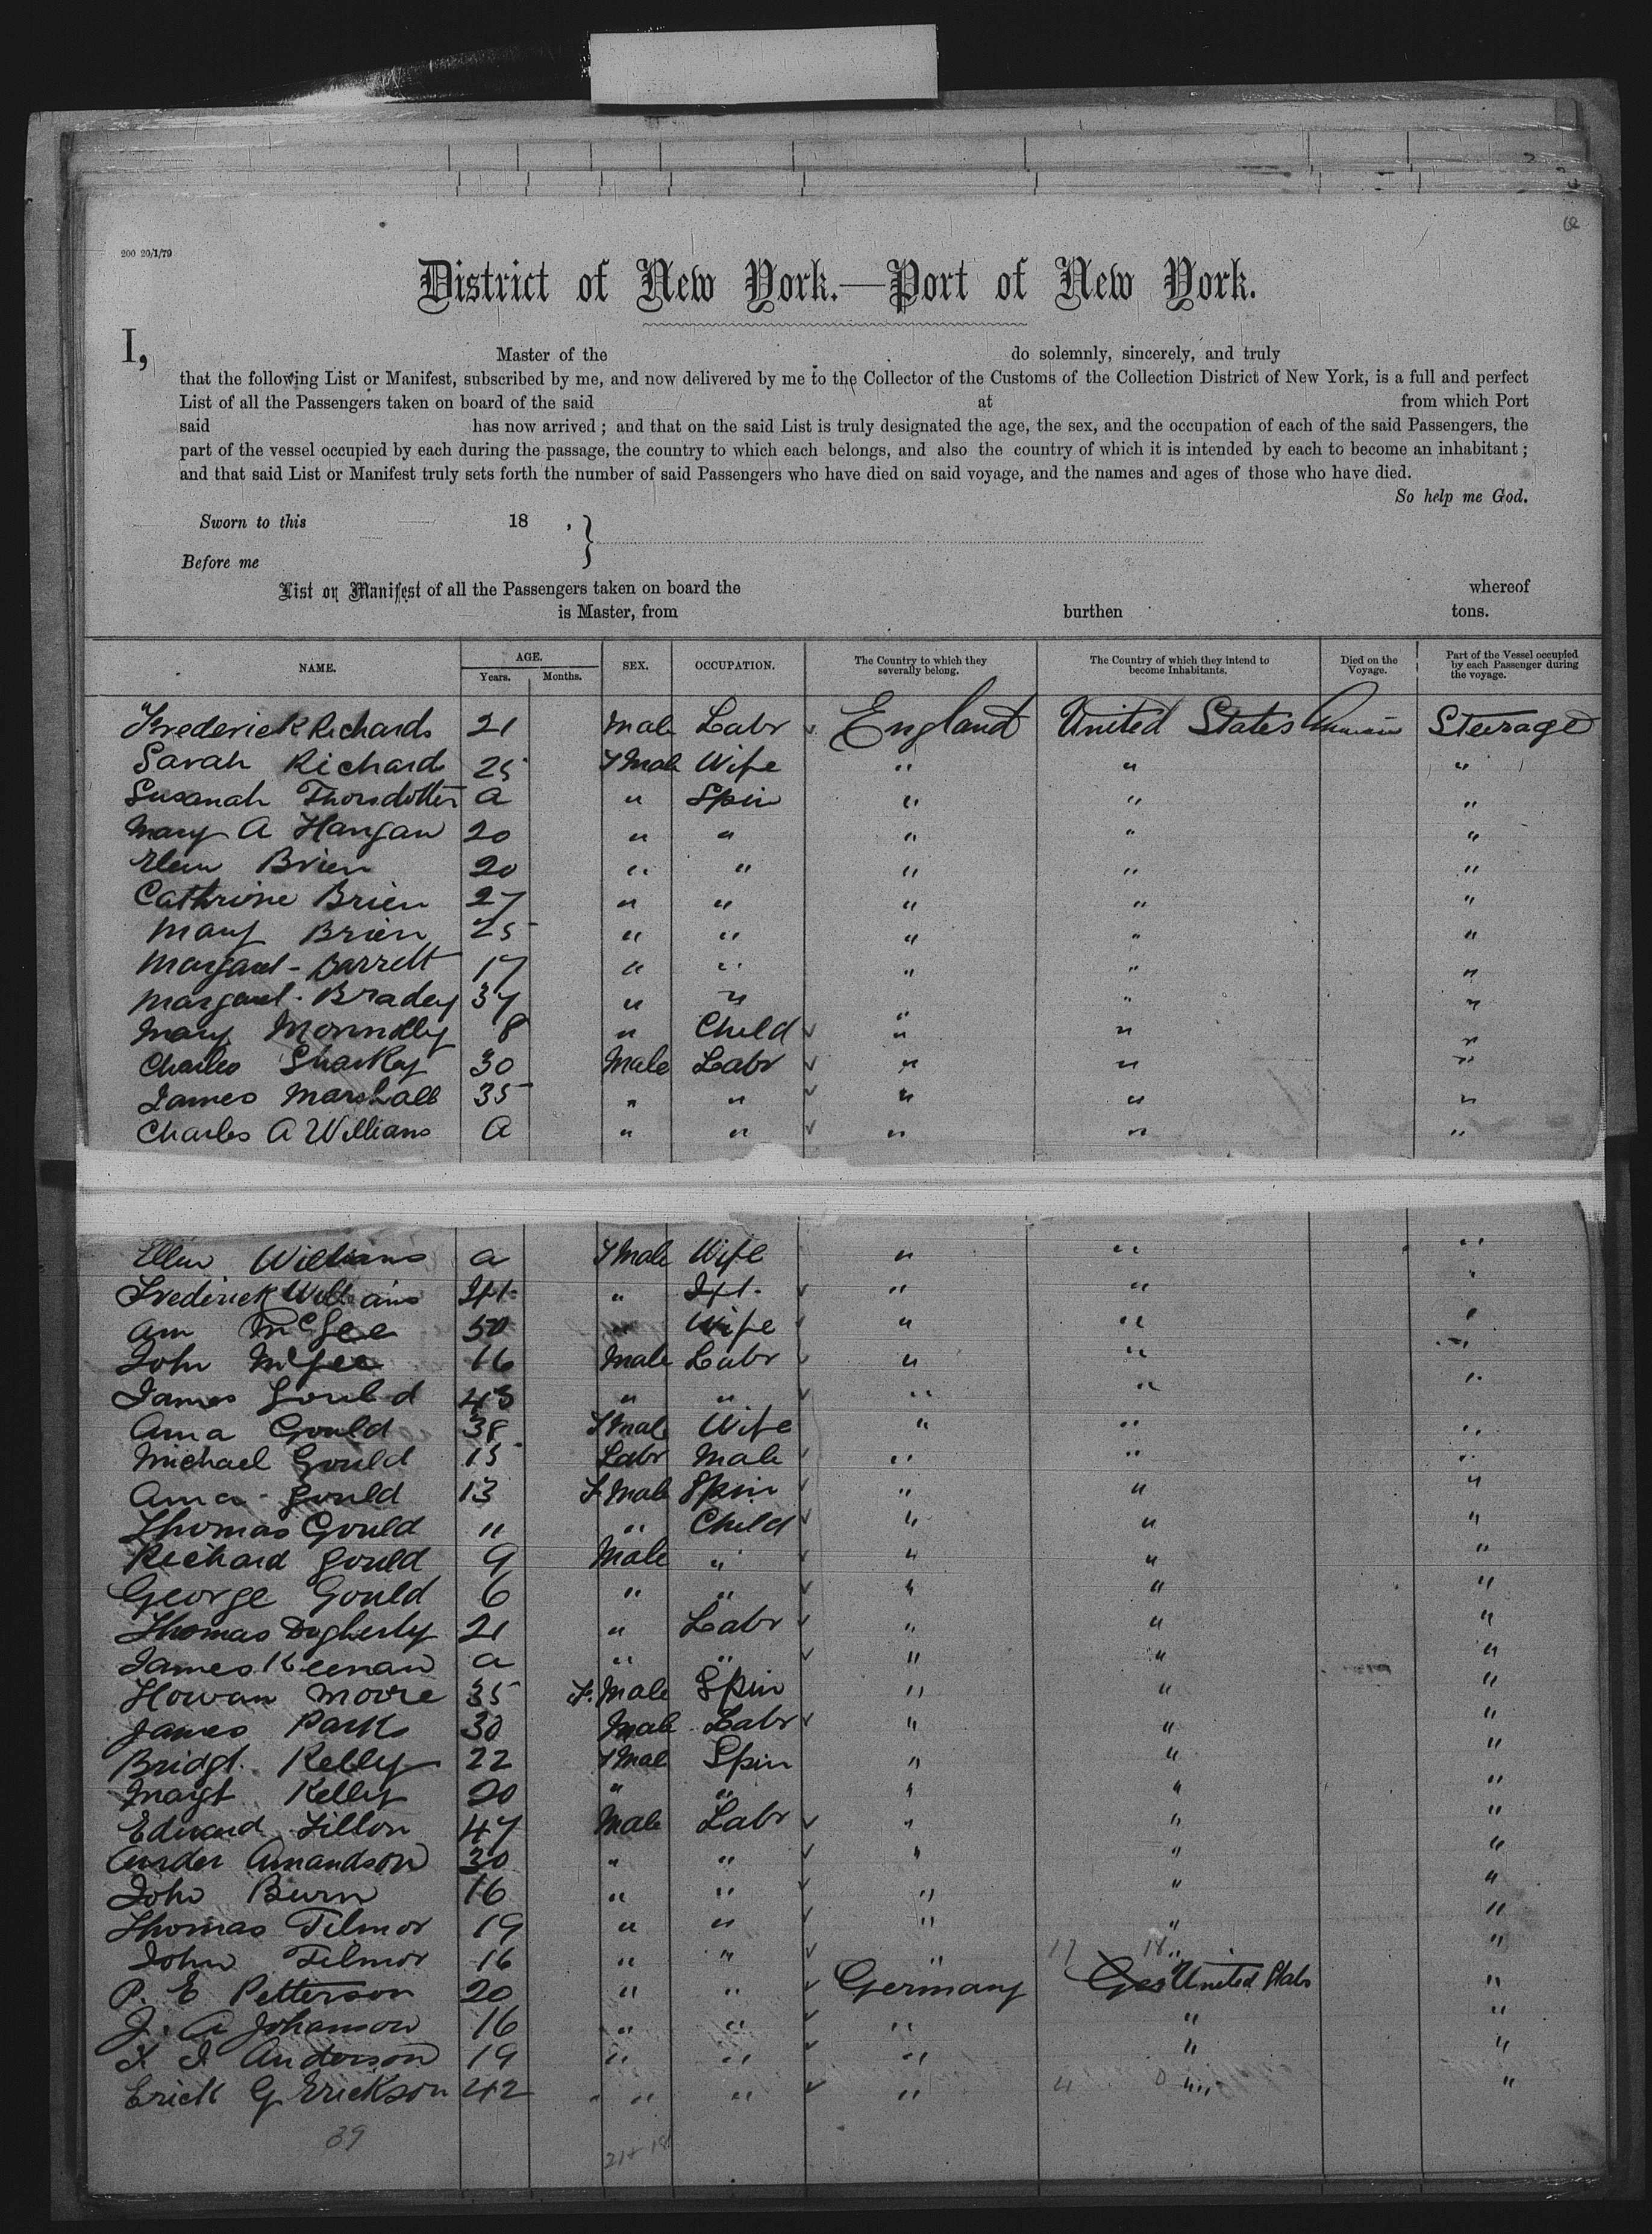 200 20/1/79
District of New York.—Port of New York.
I, Master of the do solemnly, sincerely, and truly
that the following List or Manifest, subscribed by me, and now delivered by me to the Collector of the Customs of the Collection District of New York, is a full and perfect
List of all the Passengers taken on board of the said at from which Port
said has now arrived ; and that on the said List is truly designated the age, the sex, and the occupation of each of the said Passengers, the
part of the vessel occupied by each during the passage, the country to which each belongs, and also the country of which it is intended by each to become an inhabitant ;
and that said List or Manifest truly sets forth the number of said Passengers who have died on said voyage, and the names and ages of those who have died.
So help me God.
Sworn to this 18 , }
Before me
List or Manifest of all the Passengers taken on board the whereof
is Master, from burthen tons.
NAME. AGE. Years. Months. SEX. OCCUPATION. The Country to which they severally belong. The Country of which they intend to become Inhabitants. Died on the Voyage. Part of the Vessel occupied by each Passenger during the voyage.
Frederick Richards 21 Male Labr England United States Steerage
Sarah Richards 25 FMale Wife " " "
Susanah Thorsdotter a " Spin " " "
Mary A Hangan 20 " " " " "
Elen Brien 20 " " " " "
Cathrine Brien 27 " " " " "
Mary Brien 25 " " " " "
Margaret Barrett 17 " " " " "
Margaret Bradey 37 " " " " "
Mary 8 " Child " " "
Charles Sharkey 30 Male Labr " " "
James Marshall 35 " " " " "
Charles A Williams a " " " " "
Ellen Williams a FMale Wife " " "
Frederick Williams " " " "
Ann McGee 50 Wife " " "
John McGee 16 Male Labr " " "
James Gould 43 " " " " "
Anna Gould 38 FMale Wife " " "
Michael Gould 15 Labr Male " " "
Anna Gould 13 F Male Spin " " "
Thomas Gould 11 " Child " " "
Richard Gould 9 Male " " " "
George Gould 6 " " " " "
Thomas Dogherty 21 " Labr " " "
James Keenan a " " " " "
Moore 35 F. Male Spin " " "
James Park 30 Male Labr " " "
Bridgt. Kelly 22 FMale Spin " " "
Margt Kelly 20 " " " " "
Edward Fillon 47 Male Labr " " "
Ander Amandson 30 " " " " "
John Burn 16 " " " " "
Thomas Filmor 19 " " " " "
John Filmor 16 " " " 17 18 " "
P. E Petterson 20 " " Germany United Stats "
J. A Johanson 16 " " " " "
F. I Anderson 19 " " " " "
Erick G Erickson 42 " " " 4 0 " "
39 21+18